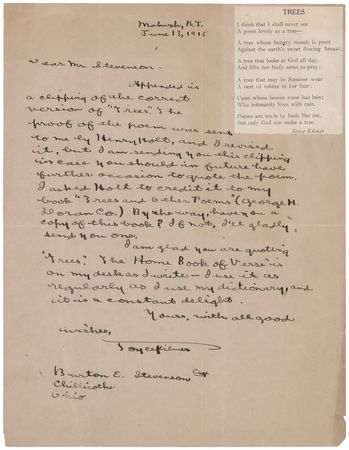 Mahwah, N.J.
June 13, 1915
TREES
I think that I shall never see
A poem lovely as a tree—
A tree whose hungry mouth is prest
Against the earth's sweet flowing breast;
A tree that looks at God all day,
And lifts her leafy arms to pray;
A tree that may in Summer wear
A nest of robins in her hair;
Upon whose bosom snow has lain;
Who intimately lives with rain.
Poems are made by fools like me,
But only God can make a tree.
Joyce Kilmer
Dear Mr. Stevenson-
Appended is
a clipping of the correct
version of "Trees". The
proof of the poem was sent
to me by Henry Holt, and I revised
it, but I am sending you this clipping
in case you should in future have
further occasion to quote the poem.
I asked Holt to credit it to my
book "Trees and Other Poems" (George H.
Doran Co.) By the way, have you a
copy of this book? If not, I'll gladly
send you one.
I am glad you are quoting
"Trees". The Home Book of Verse is
on my desk as I write - I use it as
regularly as I use my dictionary, and
it is a constant delight.
Yours, with all good
wishes,
Joyce Kilmer
Burton E. Stevenson Esq
Chillicothe
Ohio